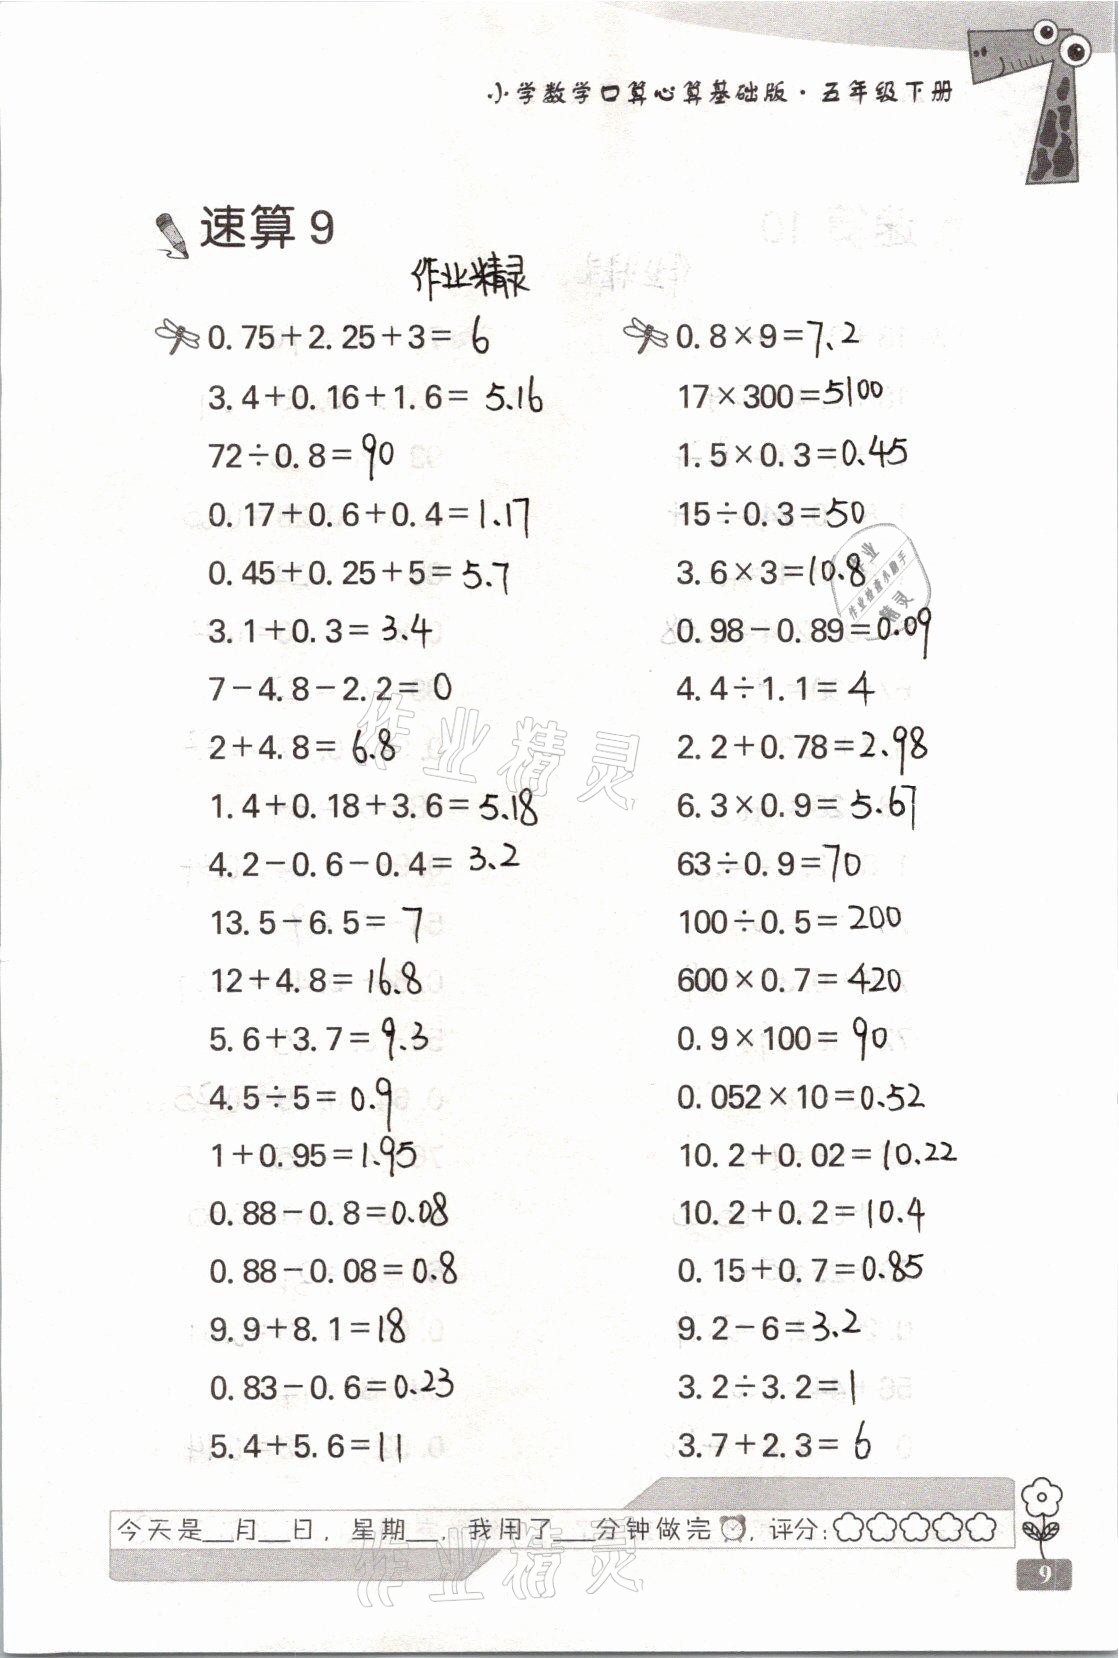 小学数学口算心算基础版·五年级下册
速算 9
作业精灵
0.75+2.25+3=6
3.4+0.16+1.6=5.16
72÷0.8=90
0.17+0.6+0.4=1.17
0.45+0.25+5=5.7
3.1+0.3=3.4
7-4.8-2.2=0
2+4.8=6.8
1.4+0.18+3.6=5.18
4.2-0.6-0.4=3.2
13.5-6.5=7
12+4.8=16.8
5.6+3.7=9.3
4.5÷5=0.9
1+0.95=1.95
0.88-0.8=0.08
0.88-0.08=0.8
9.9+8.1=18
0.83-0.6=0.23
5.4+5.6=11
0.8×9=7.2
17×300=5100
1.5×0.3=0.45
15÷0.3=50
3.6×3=10.8
0.98-0.89=0.09
4.4÷1.1=4
2.2+0.78=2.98
6.3×0.9=5.67
63÷0.9=70
100÷0.5=200
600×0.7=420
0.9×100=90
0.052×10=0.52
10.2+0.02=10.22
10.2+0.2=10.4
0.15+0.7=0.85
9.2-6=3.2
3.2÷3.2=1
3.7+2.3=6
作业
作业检查小助手
精灵
作业精灵
今天是__月__日，星期__，我用了__分钟做完，评分：
作业精灵
9